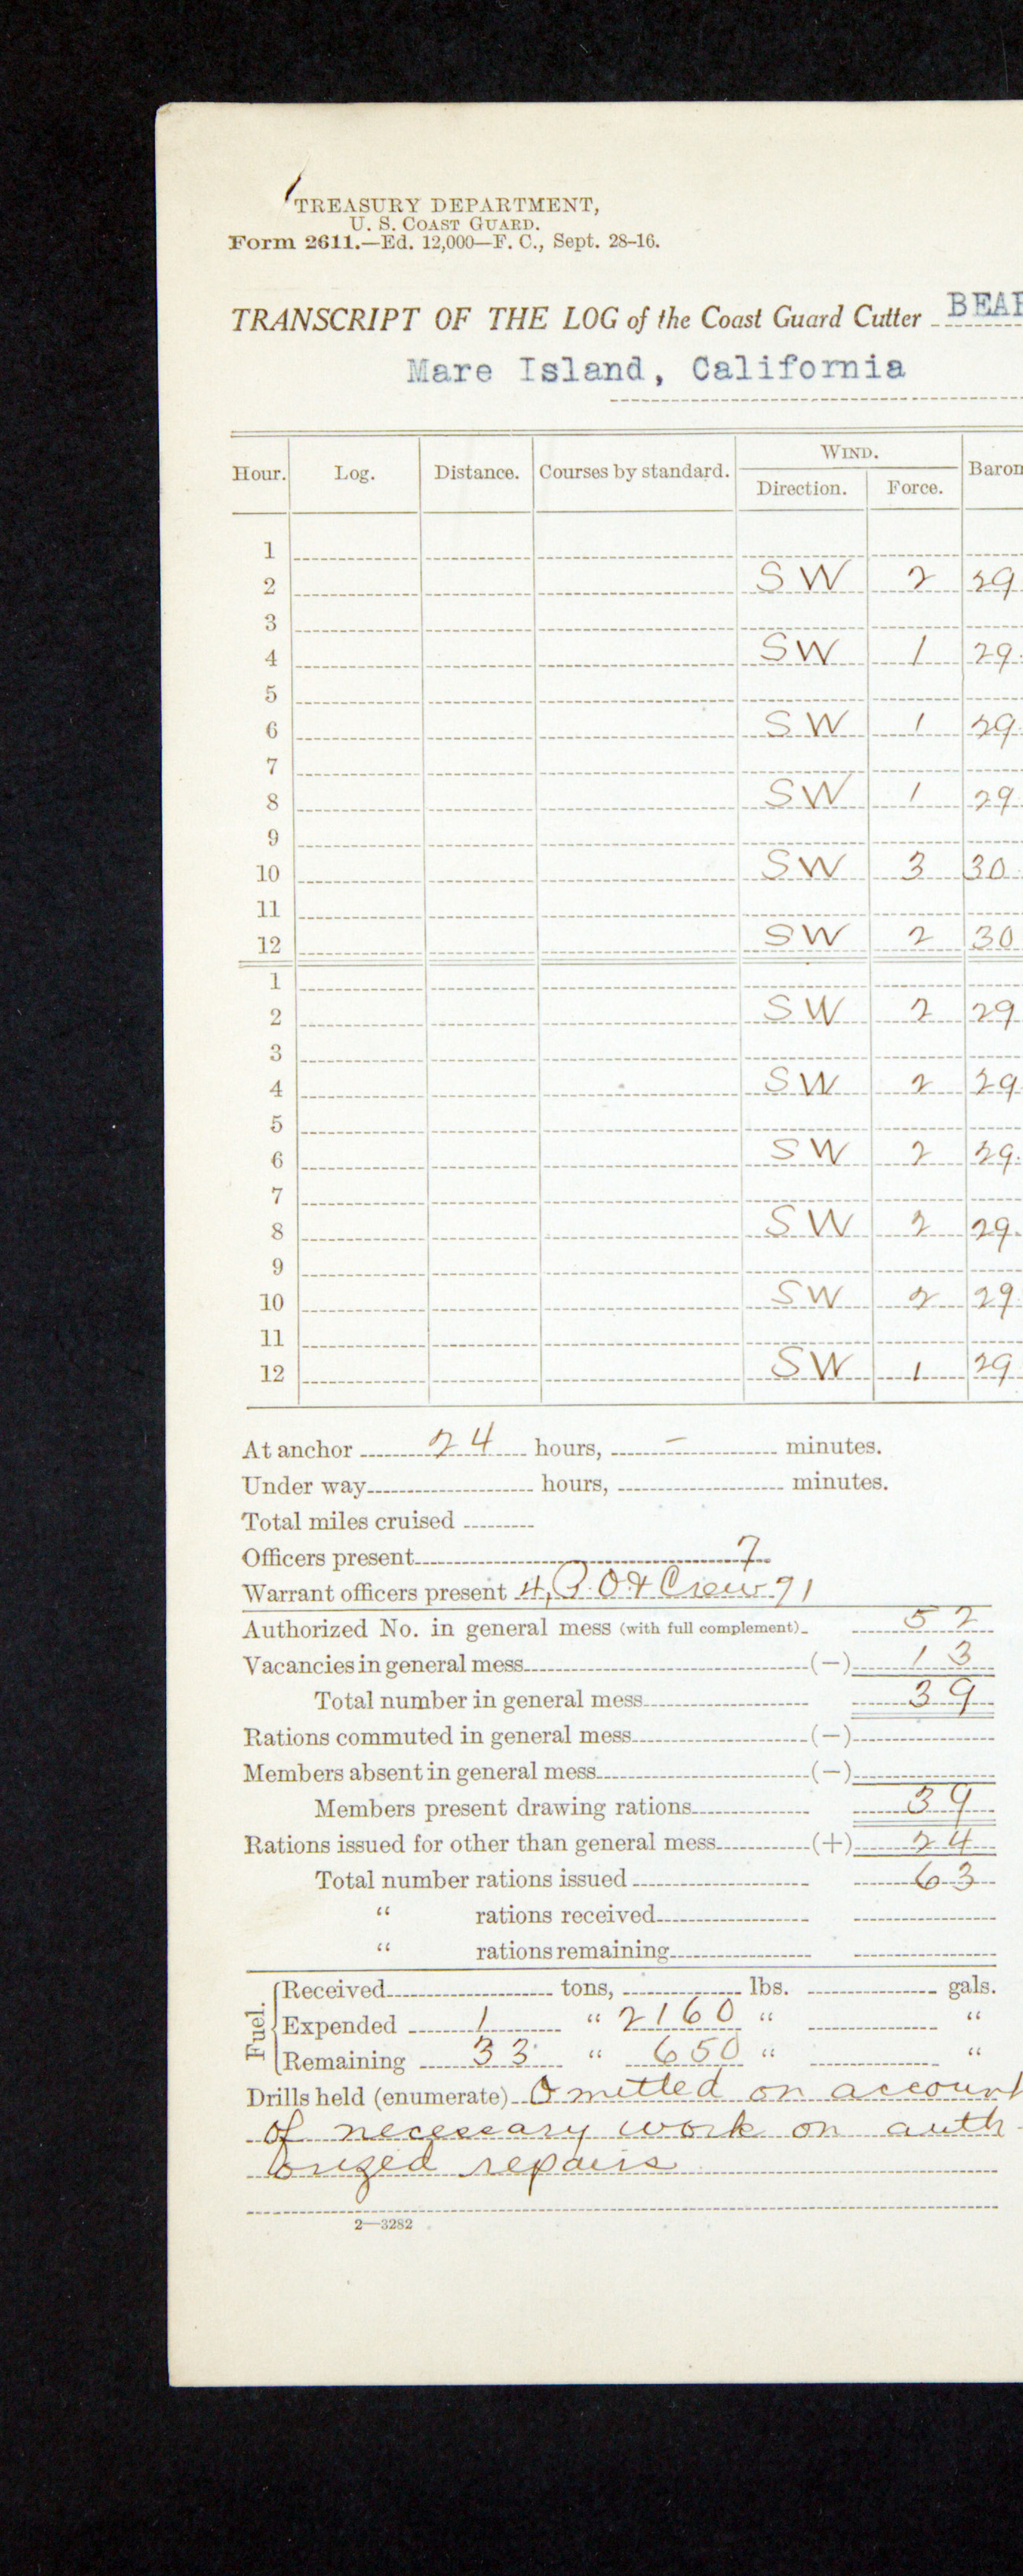 TREASURY DEPARTMENT,
U. S. COAST GUARD.
Form 2611.—Ed. 12,000—F. C., Sept. 28-16.
TRANSCRIPT OF THE LOG of the Coast Guard Cutter BEAR
Mare Island, California
WIND.
Hour. Log. Distance. Courses by standard. Direction. Force. Baron
1
2 SW 2 29
3
4 SW 1 29.
5
6 SW 1 29.
7
8 SW 1 29
9
10 SW 3 30
11
12 SW 2 30
1
2 SW 2 29
3
4 SW 2 29
5
6 SW 2 29.
7
8 SW 2 29.
9
10 SW 2 29
11
12 SW 1 29
At anchor 24 hours, — minutes.
Under way hours, minutes.
Total miles cruised
Officers present 7
Warrant officers present 4, P.O. & Crew 71
Authorized No. in general mess (with full complement) 52
Vacancies in general mess (—) 13
Total number in general mess 39
Rations commuted in general mess (—)
Members absent in general mess (—)
Members present drawing rations 39
Rations issued for other than general mess (+) 24
Total number rations issued 63
" rations received
" rations remaining
Fuel. Received tons, lbs. gals.
Expended 1 " 2160 " "
Remaining 33 " 650 " "
Drills held (enumerate) Omitted on account
of necessary work on auth-
orized repairs
2—3282